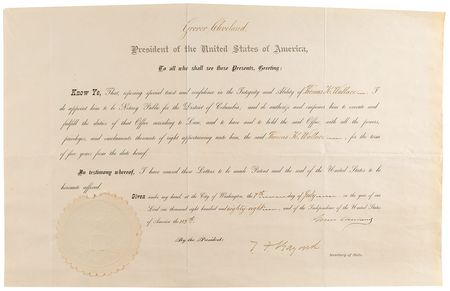 Grover Cleveland
President of the United States of America,
To all who shall see these Presents, Greeting:
Know Ye, That, reposing special trust and confidence in the Integrity and Ability of Thomas H. Wallace I
do appoint him to be Notary Public for the District of Columbia; and do authorize and empower him to execute and
fulfill the duties of that Office according to Law, and to have and to hold the said Office with all the powers,
privileges, and emoluments thereunto of right appertaining unto him, the said Thomas H. Wallace, for the term
of five years from the date hereof.
In testimony whereof, I have caused these Letters to be made Patent and the seal of the United States to be
hereunto affixed.
Given under my hand, at the City of Washington, the 7th day of July, in the year of our
Lord one thousand eight hundred and eighty-eight, and of the Independence of the United States
of America the
Grover Cleveland
By the President:
T. F. Bayard
Secretary of State.